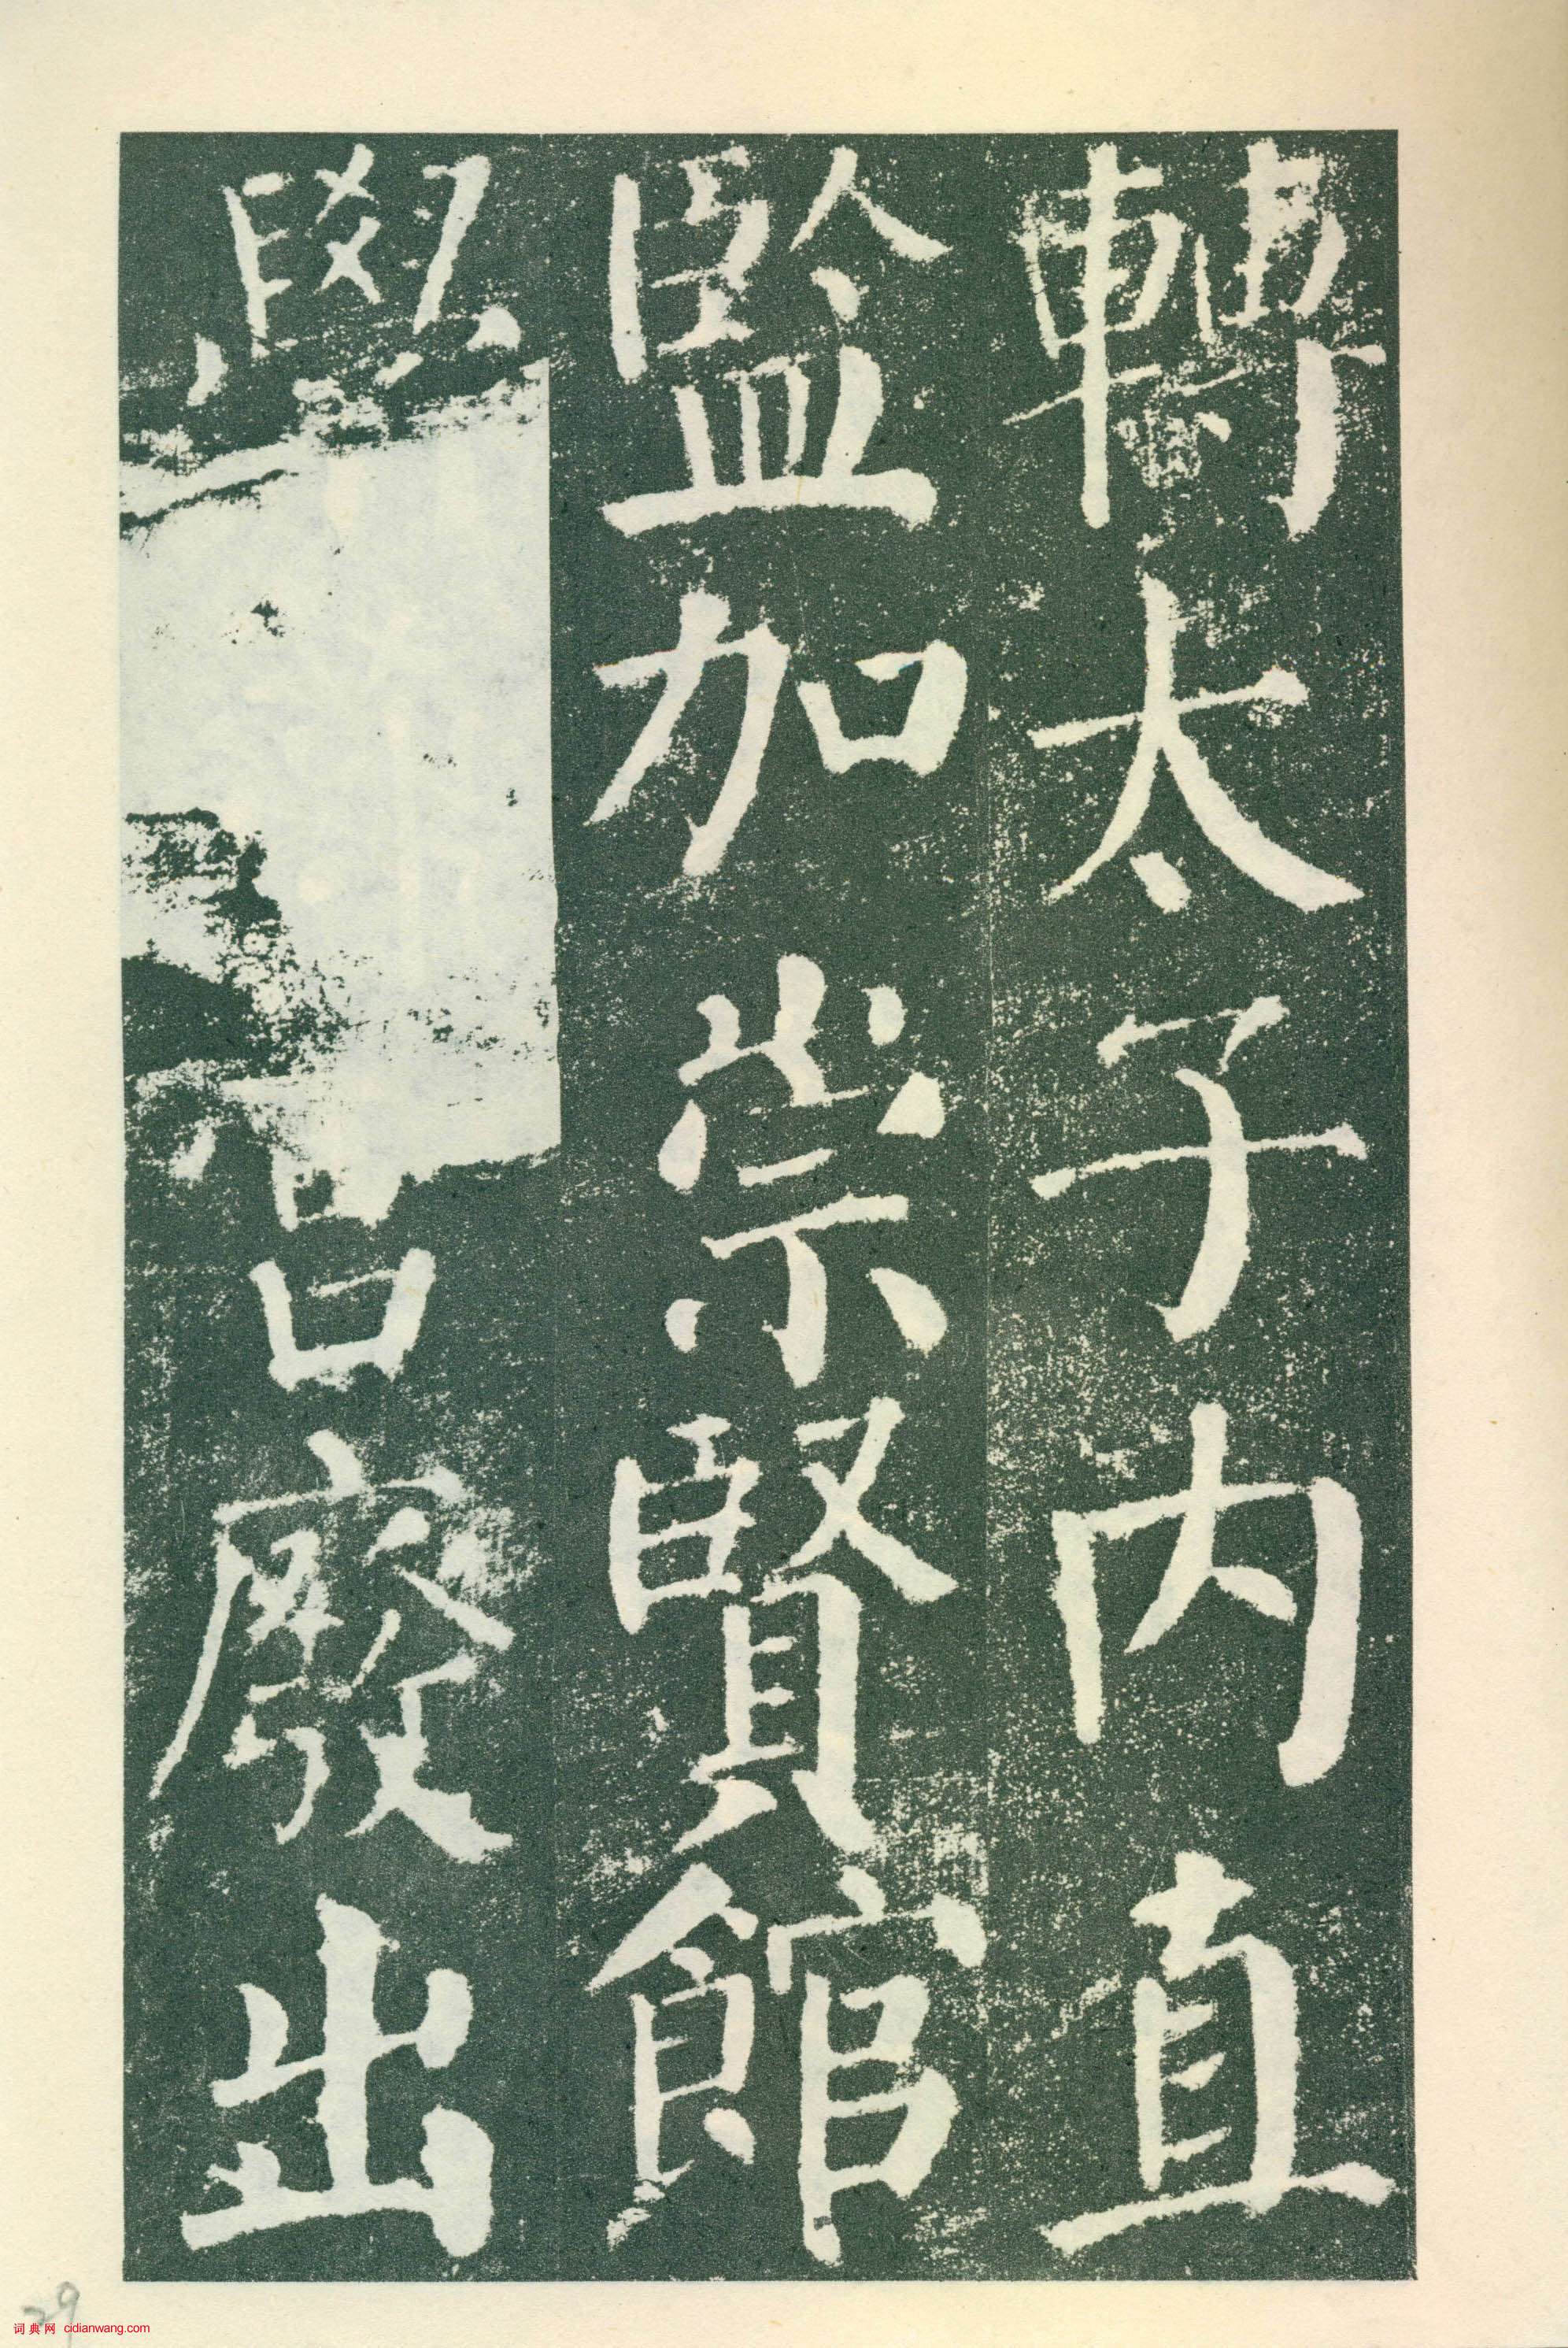 轉太子内直
監加崇賢館
學宮廢出
29
词典网 cidianwang.com